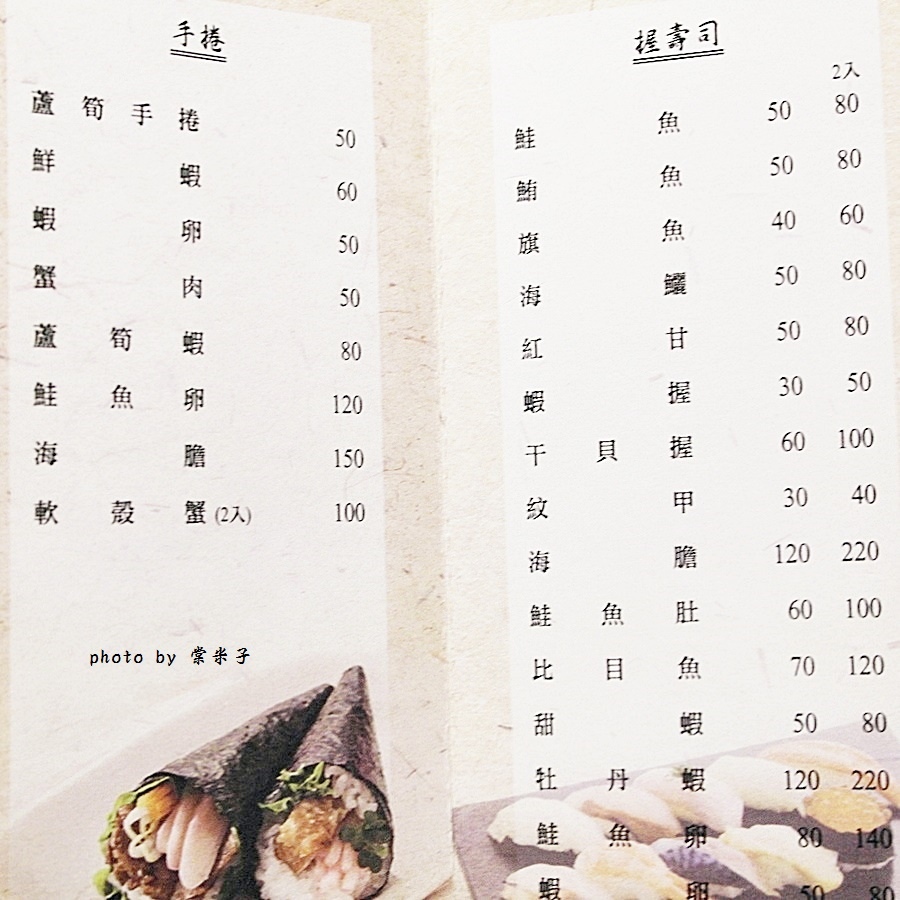 手捲
蘆筍手捲 50
鮮蝦 60
蝦卵 50
蟹肉 50
蘆筍蝦 80
鮭魚卵 120
海膽 150
軟殼蟹(2入) 100
photo by 棠米子
握壽司
2入
鮭魚 50 80
鮪魚 50 80
旗魚 40 60
海鱺 50 80
紅甘 50 80
蝦握 30 50
干貝握 60 100
紋甲 30 40
海膽 120 220
鮭魚肚 60 100
比目魚 70 120
甜蝦 50 80
牡丹蝦 120 220
鮭魚卵 80 140
蝦卵 50 80